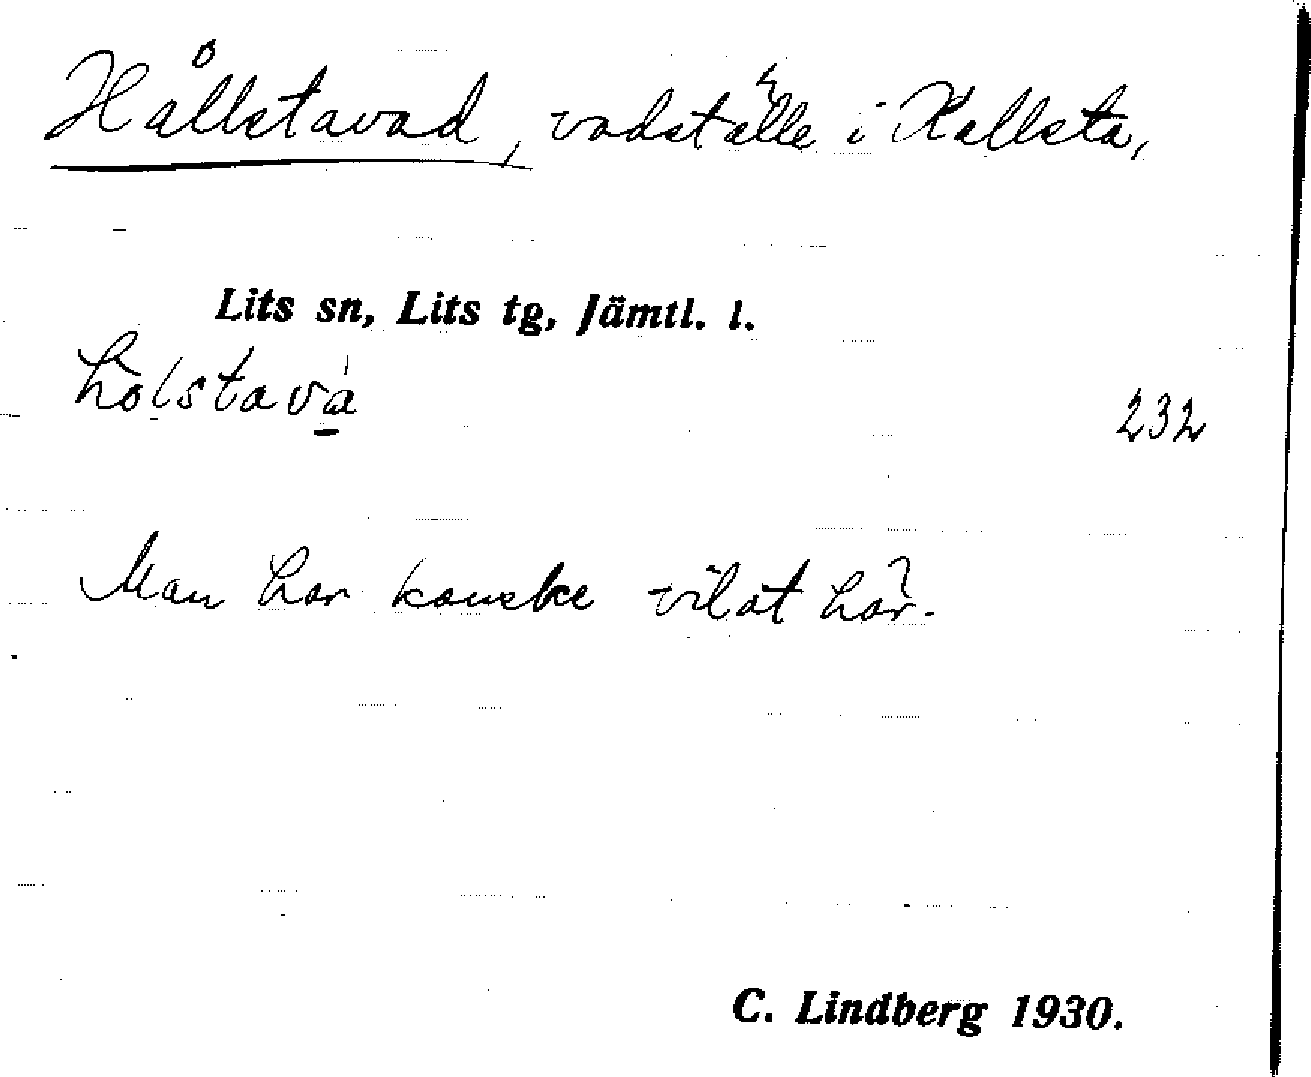 Hållstavad, vadställe i Hallsta,
Lits sn, Lits tg, Jämtl. l.
hòlstavá
232
Man har kanske vilat här.
C. Lindberg 1930.